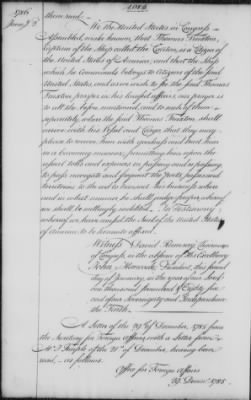 1786
Jany 2d
them and —
We the United States in Congress
Assembled, make known, that Thomas Truxton,
Captain of the Ship called the Canton, is a Citizen of
the United States of America, and that the Ship
which he Commands belongs to Citizens of the said
United States, and as we wish to see the said Thomas
Truxton prosper in his lawful affairs, our prayer is
to all the before mentioned, and to each of them
separately, where the said Thomas Truxton shall
arrive with his Vessel and Cargo, that they may
please to receive him with goodness and treat him
in a becoming manner, permitting him upon the
usual tolls and expences in passing and repassing,
to pass, navigate and frequent the ports, passes and
territories to the end to transact his business where
and in what manner he shall judge proper, whereof
we shall be willingly indebted. In testimony
whereof we have caused the Seal of the United States
of America, to be hereunto affixed.
Witness David Ramsay Chairman
of Congress, in the absence of His Excellency
John Hancock, President, this
day of January, in the year of our Lord
one thousand seven hundred & Eighty six
and of our Sovereignty and Independence
the Tenth.
A Letter of the 29th of December, 1785 from
the Secretary for Foreign Affairs, with a Letter from
Mr. J. Temple of the 21st of December, having been
read, — as follows.
Office for Foreign Affairs
29 Decemr 1785.